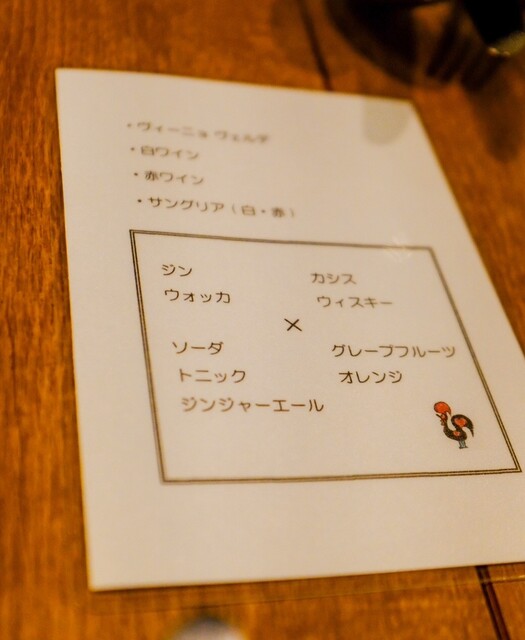 ・ヴィーニョ ヴェルデ
・白ワイン
・赤ワイン
・サングリア（白・赤）
ジン カシス
ウォッカ ウィスキー
×
ソーダ グレープフルーツ
トニック オレンジ
ジンジャーエール